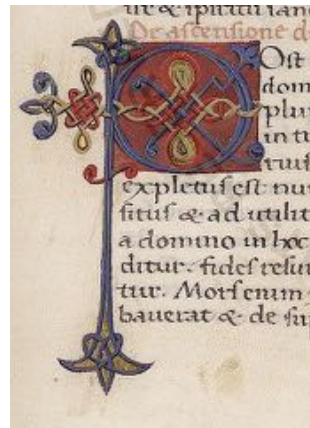 De ascensione d
Ost
dom
plur
in tu
tuis
expletus est nu
situs & ad utilit
a domino in hoc
ditur. fides resu
tur. Mors enim
bauerat & de su